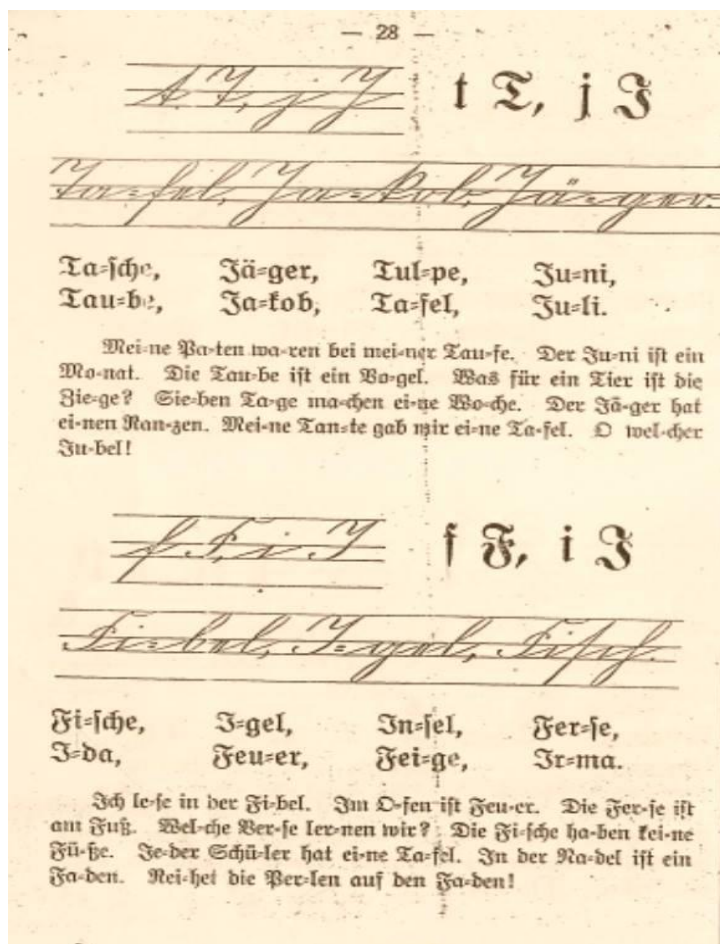 — 28 —
t T, j J
t T, j J
Ta=fel, Ja=kob, Jä=ger.
Ta=sche, Jä=ger, Tul=pe, Ju=ni,
Tau=be, Ja=kob, Ta=fel, Ju=li.
Mei=ne Pa=ten wa=ren bei mei=ner Tau=fe. Der Ju=ni ist ein
Mo=nat. Die Tau=be ist ein Vo=gel. Was für ein Tier ist die
Zie=ge? Sie=ben Ta=ge ma=chen ei=ne Wo=che. Der Jä=ger hat
ei=nen Ran=zen. Mei=ne Tan=te gab mir ei=ne Ta=fel. O wel=cher
Ju=bel!
f F, i I
f F, i I
Fi=bel, I=gel, Fisch.
Fi=sche, I=gel, In=sel, Fer=se,
I=da, Feu=er, Fei=ge, Ir=ma.
Ich le=se in der Fi=bel. Im O=fen ist Feu=er. Die Fer=se ist
am Fuß. Wel=che Ver=se ler=nen wir? Die Fi=sche ha=ben kei=ne
Fü=ße. Je=der Schü=ler hat ei=ne Ta=fel. In der Na=del ist ein
Fa=den. Rei=het die Per=len auf den Fa=den!